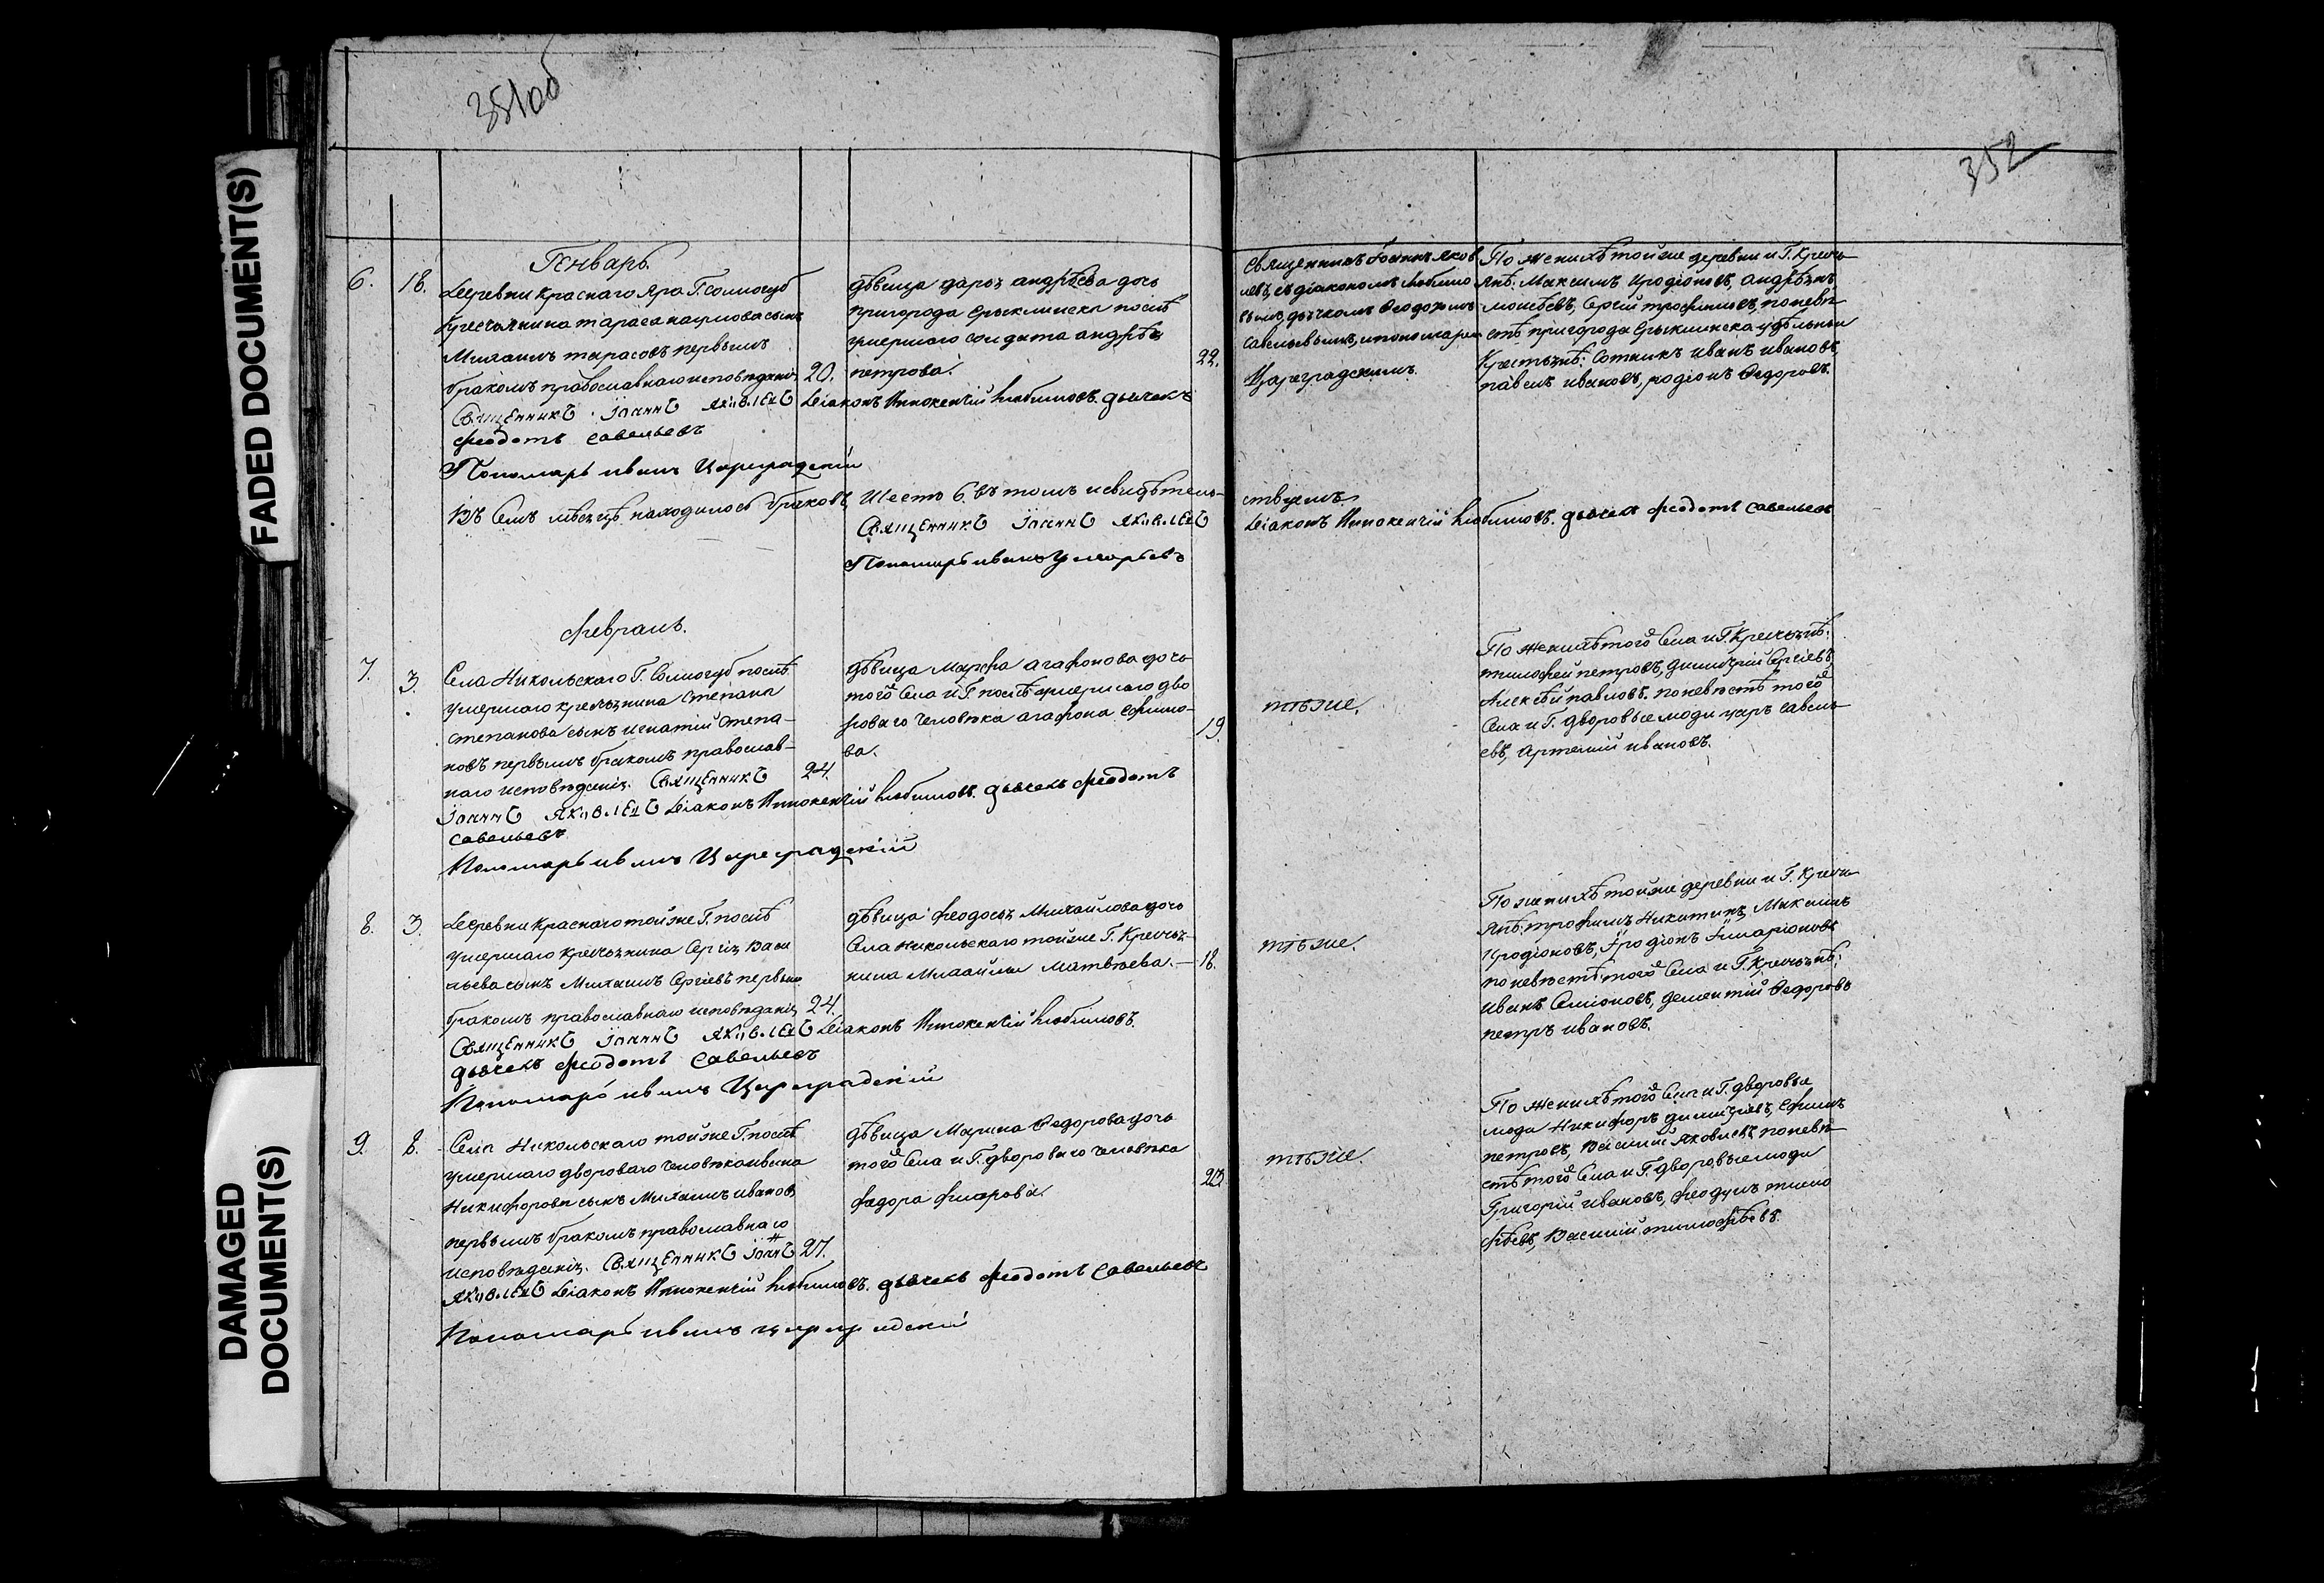 FADED DOCUMENT(S)
DAMAGED
DOCUMENT(S)
351об
352
Генварь.
6. 18.
Деревни Краснаго Яра Г. Сологуб
крестьянина тараса наумова сынъ
Михаилъ тарасовъ первымъ
бракомъ православнаго исповѣданiя 20.
Священникъ Iоаннъ Яковлевъ Дiаконъ Иннокентiй Любимовъ. дьячекъ
Феодотъ савельевъ
Пономарь иванъ Цареградскiй
дѣвица дарья андрѣева дочь
пригорода Ерыклинска послѣ
умершаго солдата андрѣя
петрова. 22.
Священникъ Iоаннъ Яков
левъ, съ дiакономъ Любимо
вымъ, дьячкомъ Феодотомъ
савельевымъ, и пономаремъ
Цареградскимъ.
По женихѣ той же деревни и Г. Крестья
янѣ: Максимъ Иродiоновъ, андрѣянъ
моисѣевъ, Сергiй трофимовъ, по невѣ
стѣ пригорода Ерыклинска удѣльныи
Крестьянѣ: Сотникъ иванъ ивановъ,
павелъ ивановъ, родiонъ Ѳедоровъ.
Въ Семъ мѣсяцѣ находилось браковъ Шесть 6. въ томъ и свидѣтель-
ствуемъ.
Священникъ Iоаннъ Яковлевъ
Дiаконъ Иннокентiй Любимовъ. дьячекъ Феодотъ савельевъ
Пономарь иванъ
Февраль.
7. 3.
Села Никольскаго Г. Сологуб послѣ
умершаго крестьянина Степана
степанова сынъ игнатiй Степа-
новъ первымъ бракомъ православ-
наго исповѣданiя. Священникъ 24.
Iоаннъ Яковлевъ Дiаконъ Иннокентiй Любимовъ. дьячекъ Феодотъ
савельевъ
Пономарь иванъ Цареградскiй
дѣвица Марфа агафонова дочь
того Села и Г. послѣ умершаго дво
роваго человѣка агафона ефимо-
ва. 19.
тѣ же.
По женихѣ того Села и Г. Крестьянѣ:
тимофей петровъ, димитрiй Сергiевъ,
Алексѣй павловъ. по невѣстѣ того
Села и Г. дворовые люди савель
евъ, Артемiй ивановъ.
8. 3.
Деревни Краснаго той же Г. послѣ
умершаго крестьянина Сергiя Васи
льева сынъ Михаилъ Сергiевъ первымъ
бракомъ православнаго исповѣданiя 24.
Священникъ Iоаннъ Яковлевъ Дiаконъ Иннокентiй Любимовъ.
дьячекъ Феодотъ Савельевъ
Пономарь иванъ Цареградскiй
дѣвица феодосья Михайлова дочь
Села Никольскаго той же Г. Крестья-
нина Михайлы Матвѣева. 18.
тѣ же.
По женихѣ той же деревни и Г. Крестья
янѣ: трофимъ Никитинъ, Максимъ
Иродiоновъ, Iродiонъ Iлларiоновъ
по невѣстѣ того Села и Г. Крестьянѣ:
иванъ Семiоновъ, дементiй Ѳедоровъ
петръ ивановъ.
9. 8.
Села Никольскаго той же Г. послѣ
умершаго двороваго человѣка ивана
Никифорова сынъ Михаилъ ивановъ
первымъ бракомъ православнаго
исповѣданiя. Священникъ Iоаннъ 27.
Яковлевъ Дiаконъ Иннокентiй Любимовъ. дьячекъ Феодотъ савельевъ
Пономарь иванъ цареградскiй
дѣвица Марина Ѳедорова дочь
того Села и Г. двороваго человѣка
федора
тѣ же.
По женихѣ того Села и Г. дворовые
люди Никифоръ димитрiевъ, ефимъ
петровъ, Василий Яковлевъ по невѣ
стѣ того Села и Г. дворовые люди
Григорiй ивановъ, феодулъ тимо
фѣевъ, Василiй тимофѣевъ.